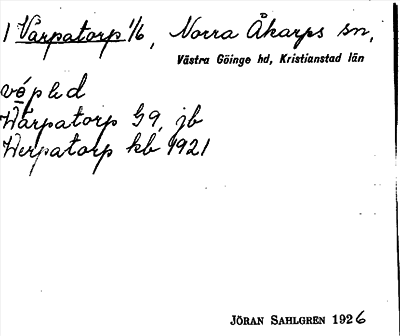 1 Värpatorp 1/6, Norra Åkarps sn,
Västra Göinge hd, Kristianstad län
Wärpatorp 59, jb
Werpatorp kb 1921
JÖRAN SAHLGREN 1926